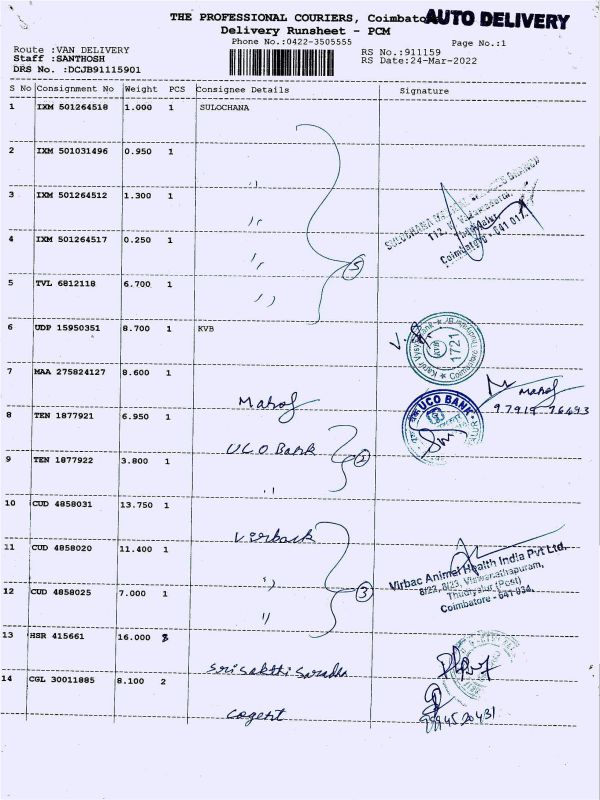 THE PROFESSIONAL COURIERS, Coimbato
AUTO DELIVERY
Delivery Runsheet - PCM
Phone No.:0422-3505555
Page No.:1
Route :VAN DELIVERY
RS No.:911159
Staff :SANTHOSH
RS Date:24-Mar-2022
DRS No. :DCJB91115901
S No Consignment No Weight PCS Consignee Details Signature
1 IXM 501264518 1.000 1 SULOCHANA
2 IXM 501031496 0.950 1
,,
3 IXM 501264512 1.300 1
,,
4 IXM 501264517 0.250 1
,,
5 TVL 6812118 6.700 1
,,
5
SULOCHANA
Coimbatore - 641 017
6 UDP 15950351 8.700 1 KVB
1721
7 MAA 275824127 8.600 1
Manoj
Manoj
97919 76493
8 TEN 1877921 6.950 1
UCO Bank
UCO BANK
9 TEN 1877922 3.800 1
,,
2
10 CUD 4858031 13.750 1
Virback
11 CUD 4858020 11.400 1
,,
12 CUD 4858025 7.000 1
,,
3
Virbac Animal Health India Pvt Ltd.
8/22, 8/23, Viswanathapuram,
Thudiyalur (Post)
Coimbatore - 641 034.
13 HSR 415661 16.000
Sri Sakthi Saradha
14 CGL 30011885 8.100 2
cogent